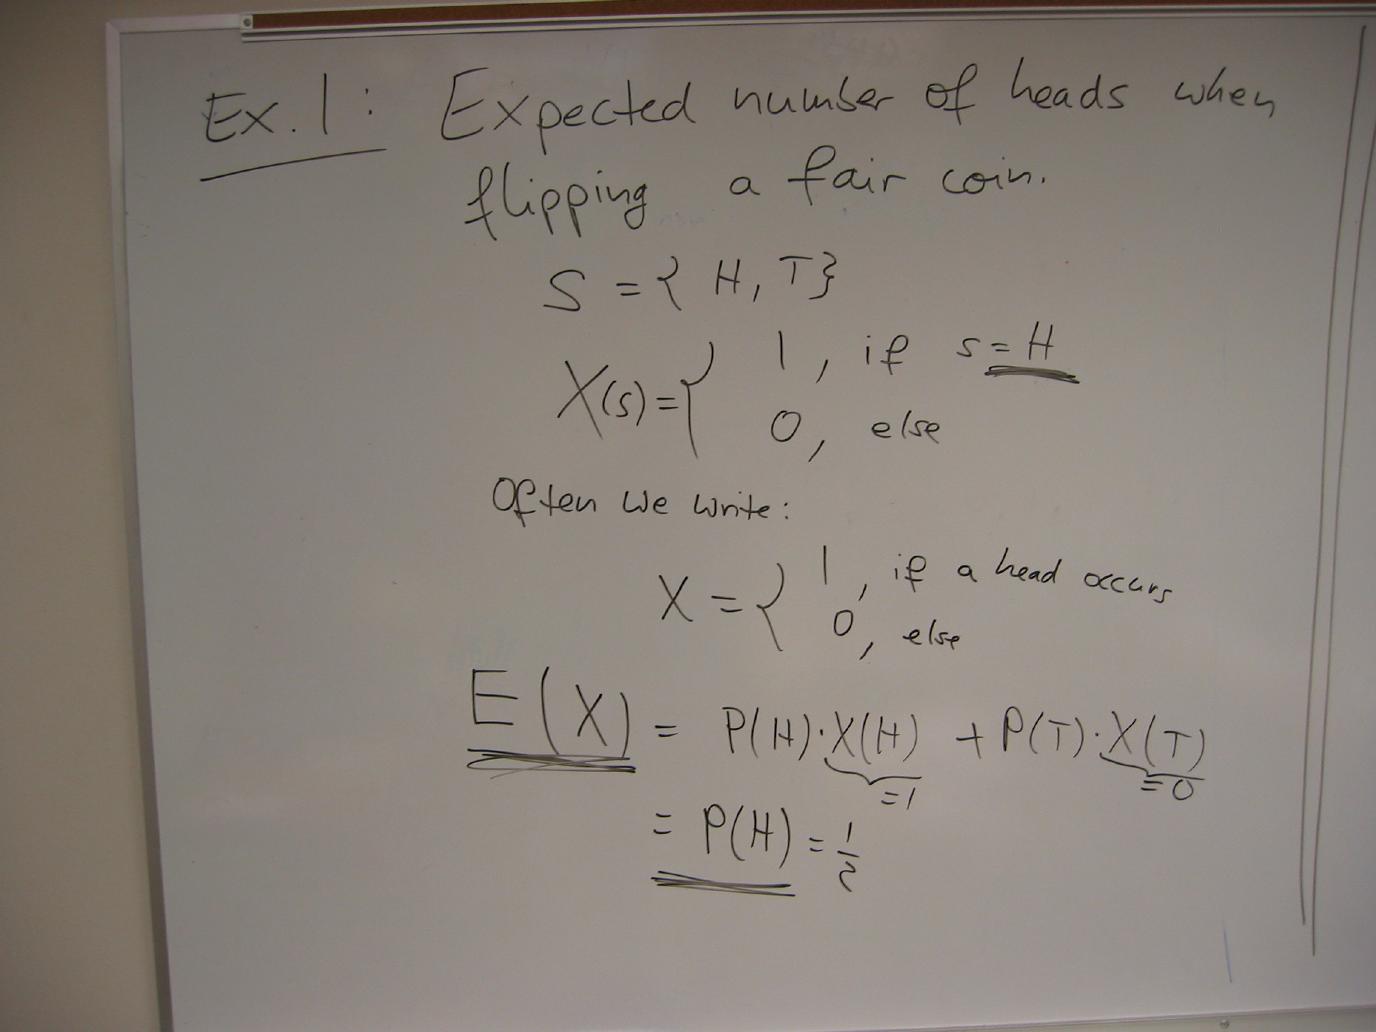 Ex. 1: Expected number of heads when
flipping a fair coin.
S = { H, T}
X(s) = { 1, if s = H
0, else
Often we write:
X = { 1, if a head occurs
0, else
E(X) = P(H)·X(H) + P(T)·X(T)
=1 =0
= P(H) = 1/2